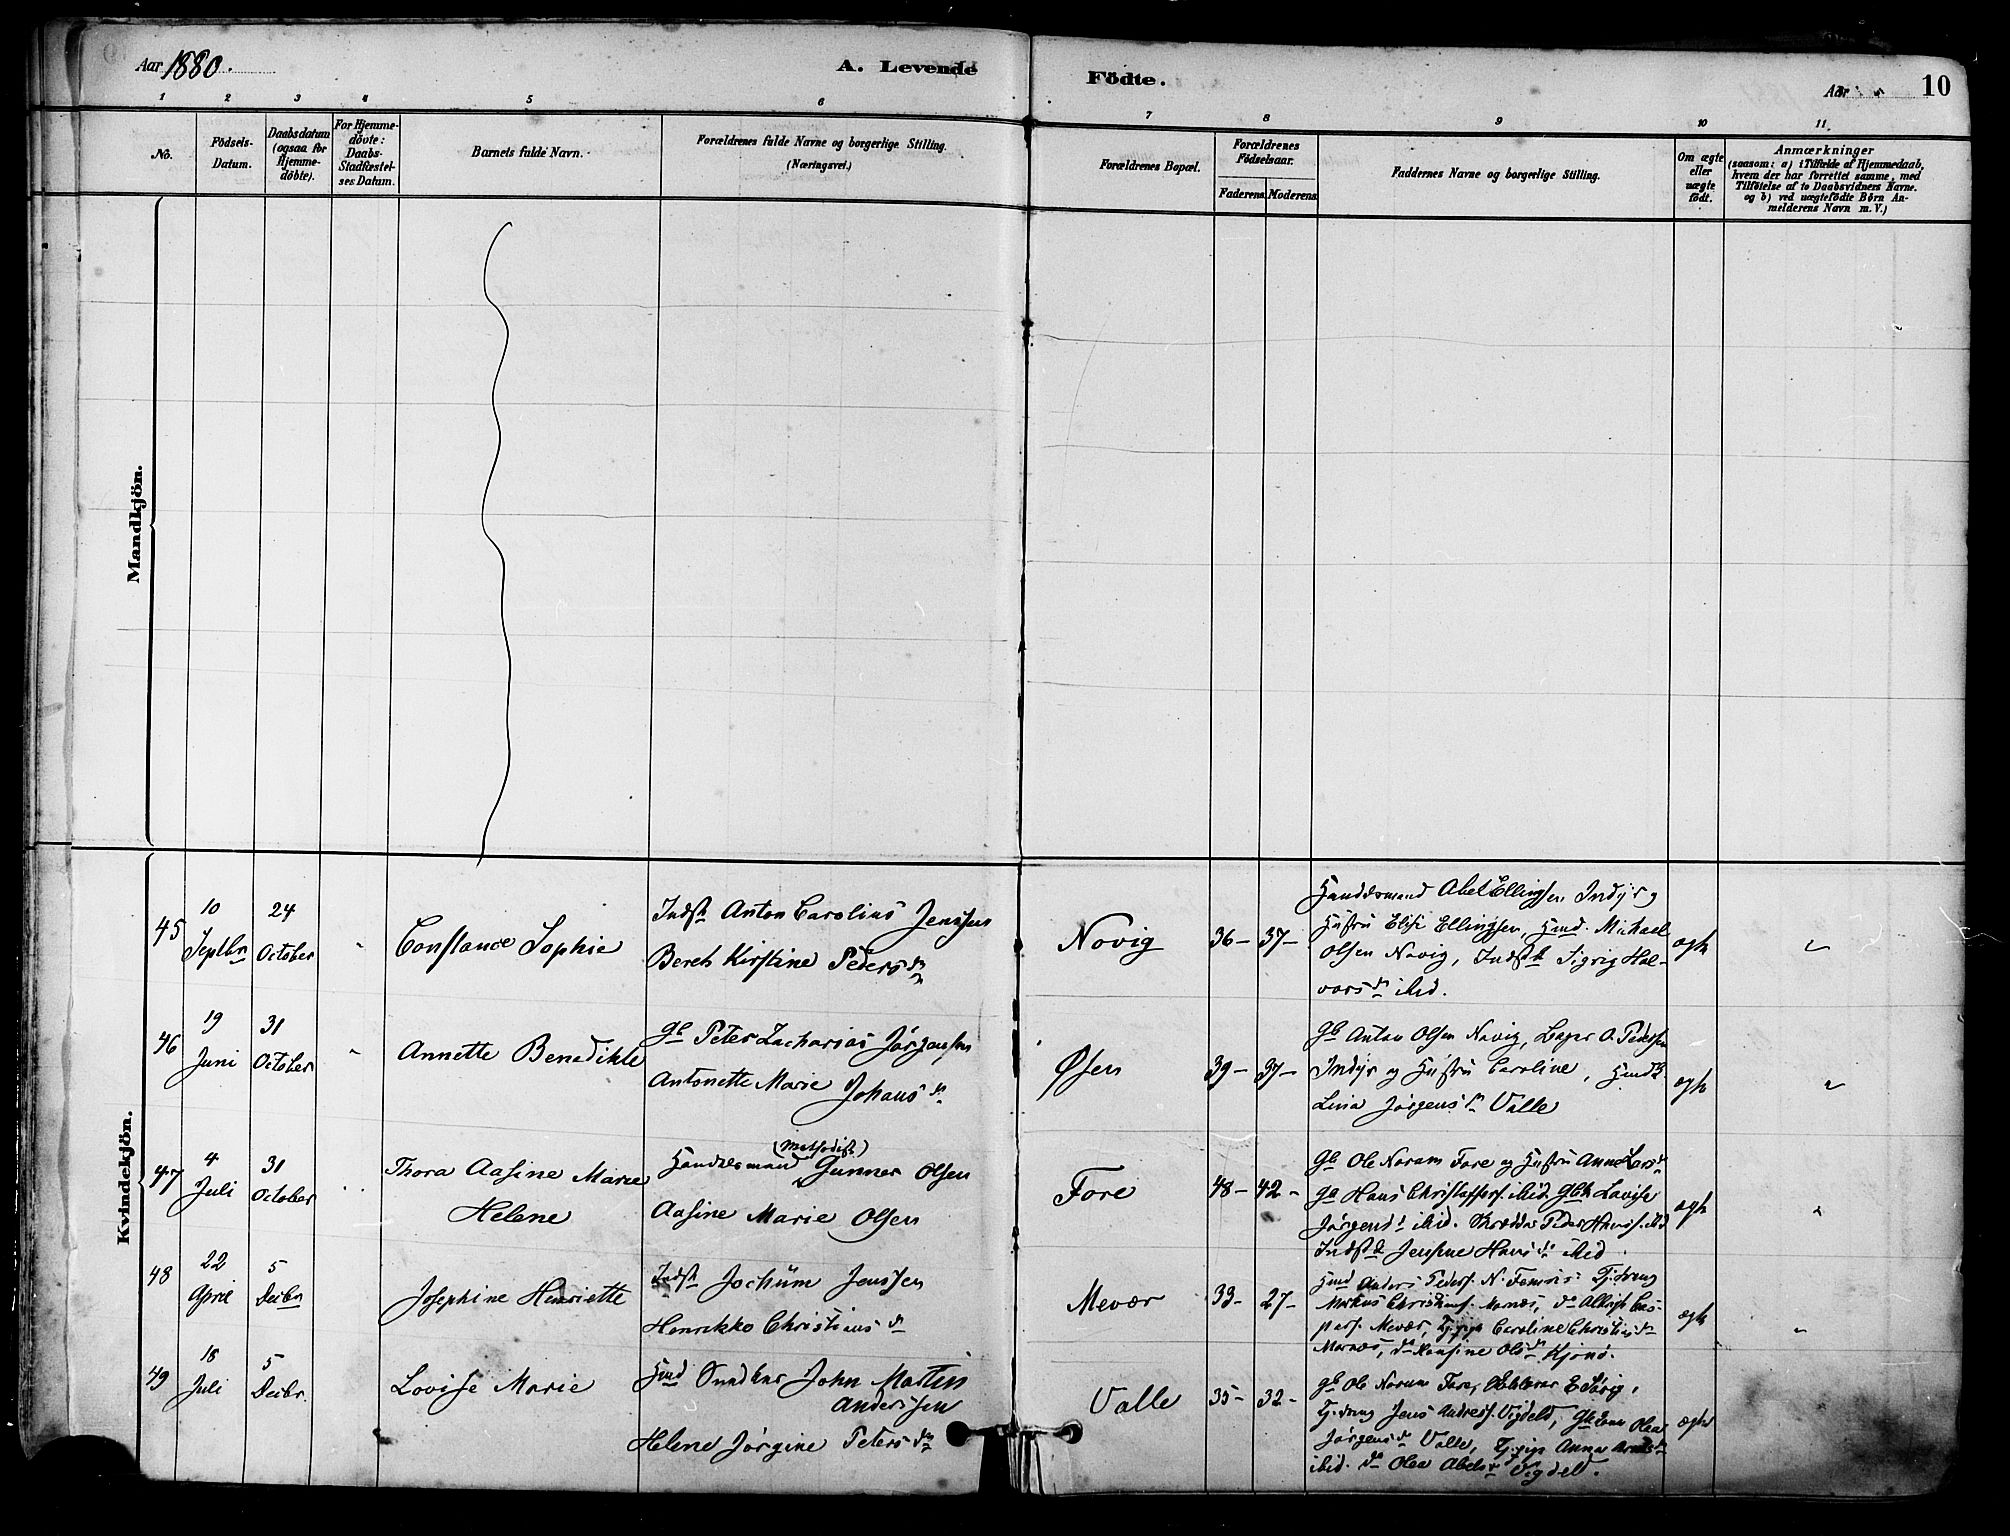 Aar 1880.
A. Levende Födte.
Aar
10
1 2 3 4 5 6 7 8 9 10 11
No.
Födsels-Datum.
Daabsdatum (ogsaa for Hjemme-döbte).
For Hjemme-döbte: Daabs-Stadfæstel-ses Datum.
Barnets fulde Navn.
Forældrenes fulde Navne og borgerlige Stilling. (Næringsvei.)
Forældrenes Bopæl.
Forældrenes Födselsaar.
Faderens. Moderens.
Faddernes Navne og borgerlige Stilling.
Om ægte eller uægte födt.
Anmærkninger
(saasom: a) i Tilfælde af Hjemmedaab,
hvem der har forrettet samme, med
Tilföielse af to Daabsvidners Navne.
og b) ved uægtefödte Børn An-
melderens Navn m. V.)
Mandkjön.
Kvindekjön.
45
10 Septbr
24 October
Constance Sophie
Indst Anton Carolius Jenssen
Bereth Kirstine Pedersdn
Novig
36 - 37 -
Handelsmand Abel Ellingsen Indyr og
Hustru Elise Ellingsen, Gmd. Michael
Olsen Novig, Indstk Sigrig Hal-
vorsdn ibid.
ægte
46
19 Juni
31 October
Annette Benedikte
Gb Peter Zacharias Jørgensen
Antonette Marie Johansdn
Øsen
39 - 37 -
Gb Anton Olsen Novig, O. Pedersen
Indyr og Hustru Caroline,
Lina Jørgensdn Valle
ægte
47
4 Juli
31 October
Thora Aasine Marie
Helene
(Methodist)
Handelsmand Gunner Olsen
Aasine Marie Olsen
Fore
48 - 42 -
Gb Ole Norum Fore og Hustru Anne Larsd
Gb Hans Christoffers. ibid, Gbk Lovise
Jørgensd ibid. Skrædder Peder Hanss. ibid
Indstk Jensine Hansdn ibid.
ægte
48
22 April
5 Decbr
Josephine Henriette
Indst Jochüm Jenssen
Henrikke Christiansdn
Mevær
33 - 27 -
Anders Peders. N. Tj.dreng
Markus Christians. Mornæs,
Mevær, Tj.pige Caroline Christiansdn
Mornæs, do Hansine Olsdn Kjonø.
ægte
49
18 Juli
5 Decbr.
Lovise Marie
John Martin
Anderssen
Helene Jørgine Petersdn
Valle
35 - 32 -
Gb Ole Norum Fore, E. Sørig,
Tj.dreng Jens Andreas. Vigdeld, Olea
Jørgensdn Valle, Tj.pige Anna
ibid. do Olea Abelsdn Vigdeld.
ægte